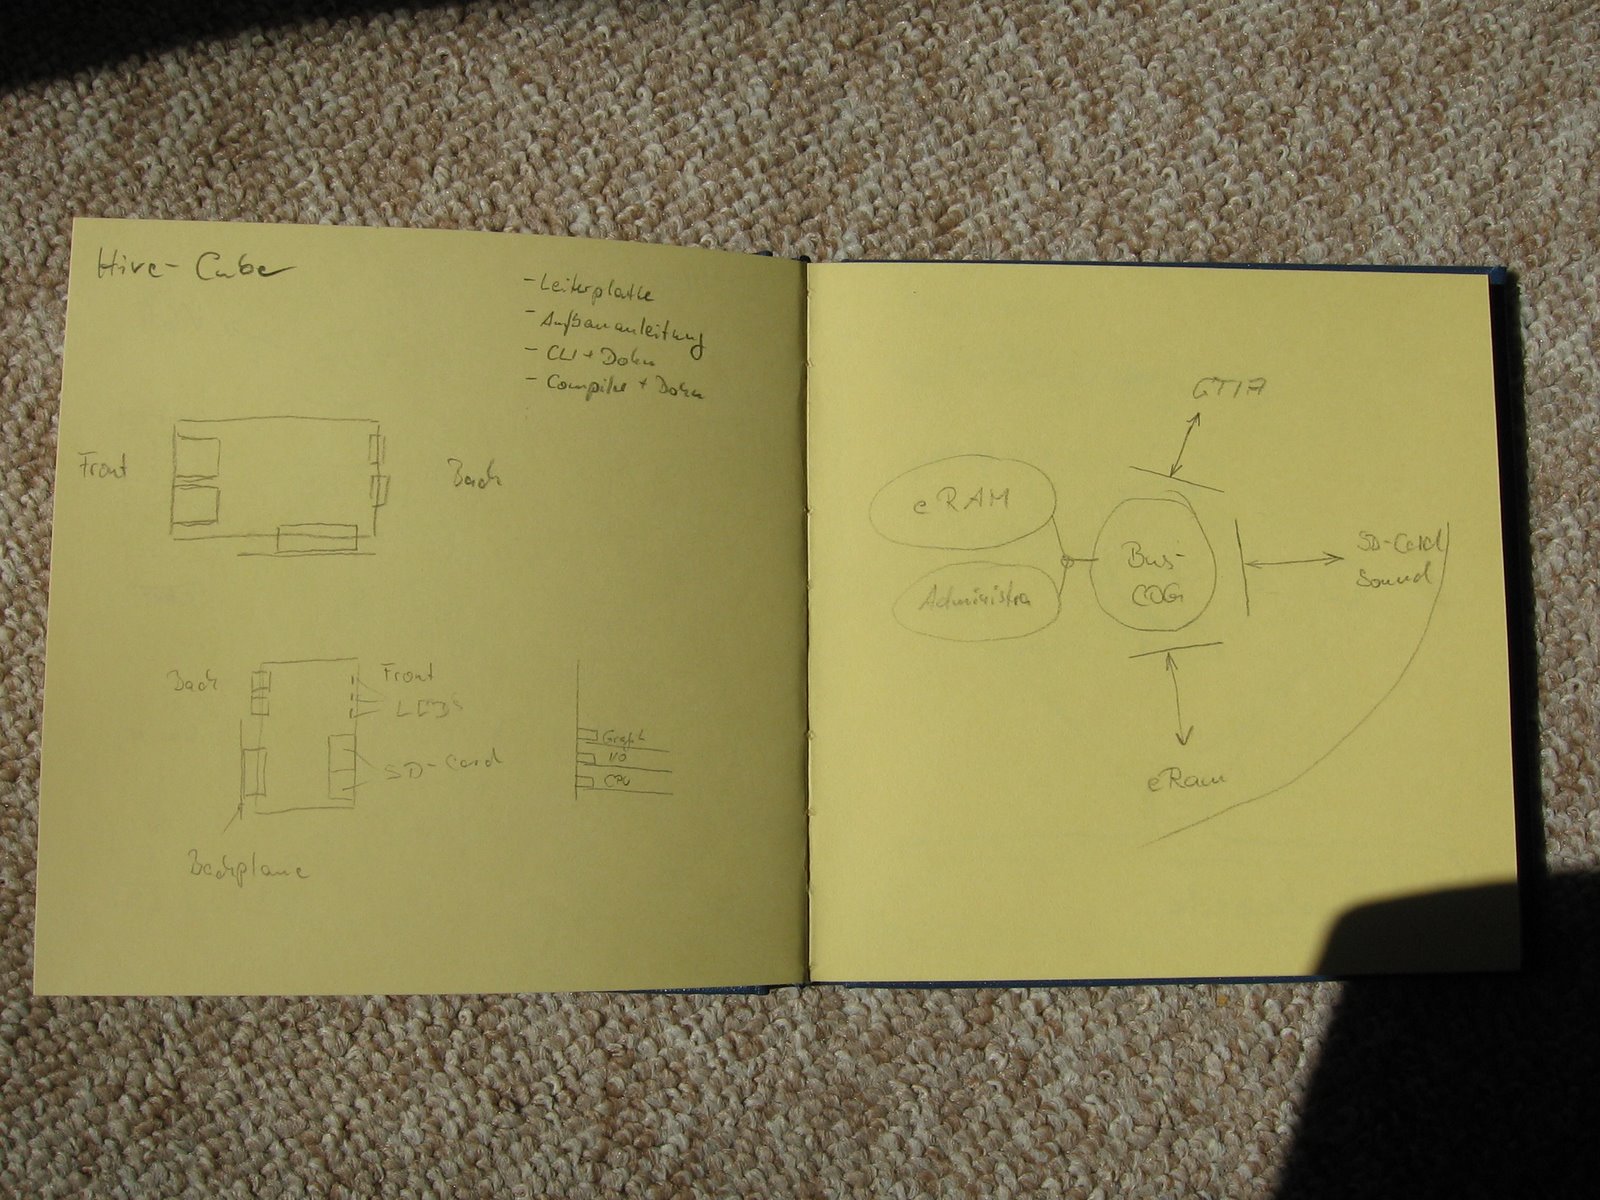 Hive-Cube
- Leiterplatte
- Aufbauanleitung
- CLI + Doku
- Compiler + Doku
Front
Back
Back
Front
LEDs
SD-Card
Backplane
Graph
I/O
CPU
GTIA
eRAM
Administra
Bus-
COG
SD-Card
Sound
eRam